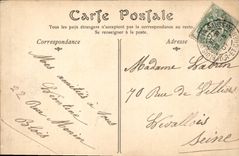 Carte Postale
Tous les pays étrangers n'acceptent pas la correspondance au recto.
Se renseigner à la poste.
Correspondance
Adresse
Mes amitiés à tous
22 Rue
Blois
Madame
70 Rue de Villiers
Levallois
Seine